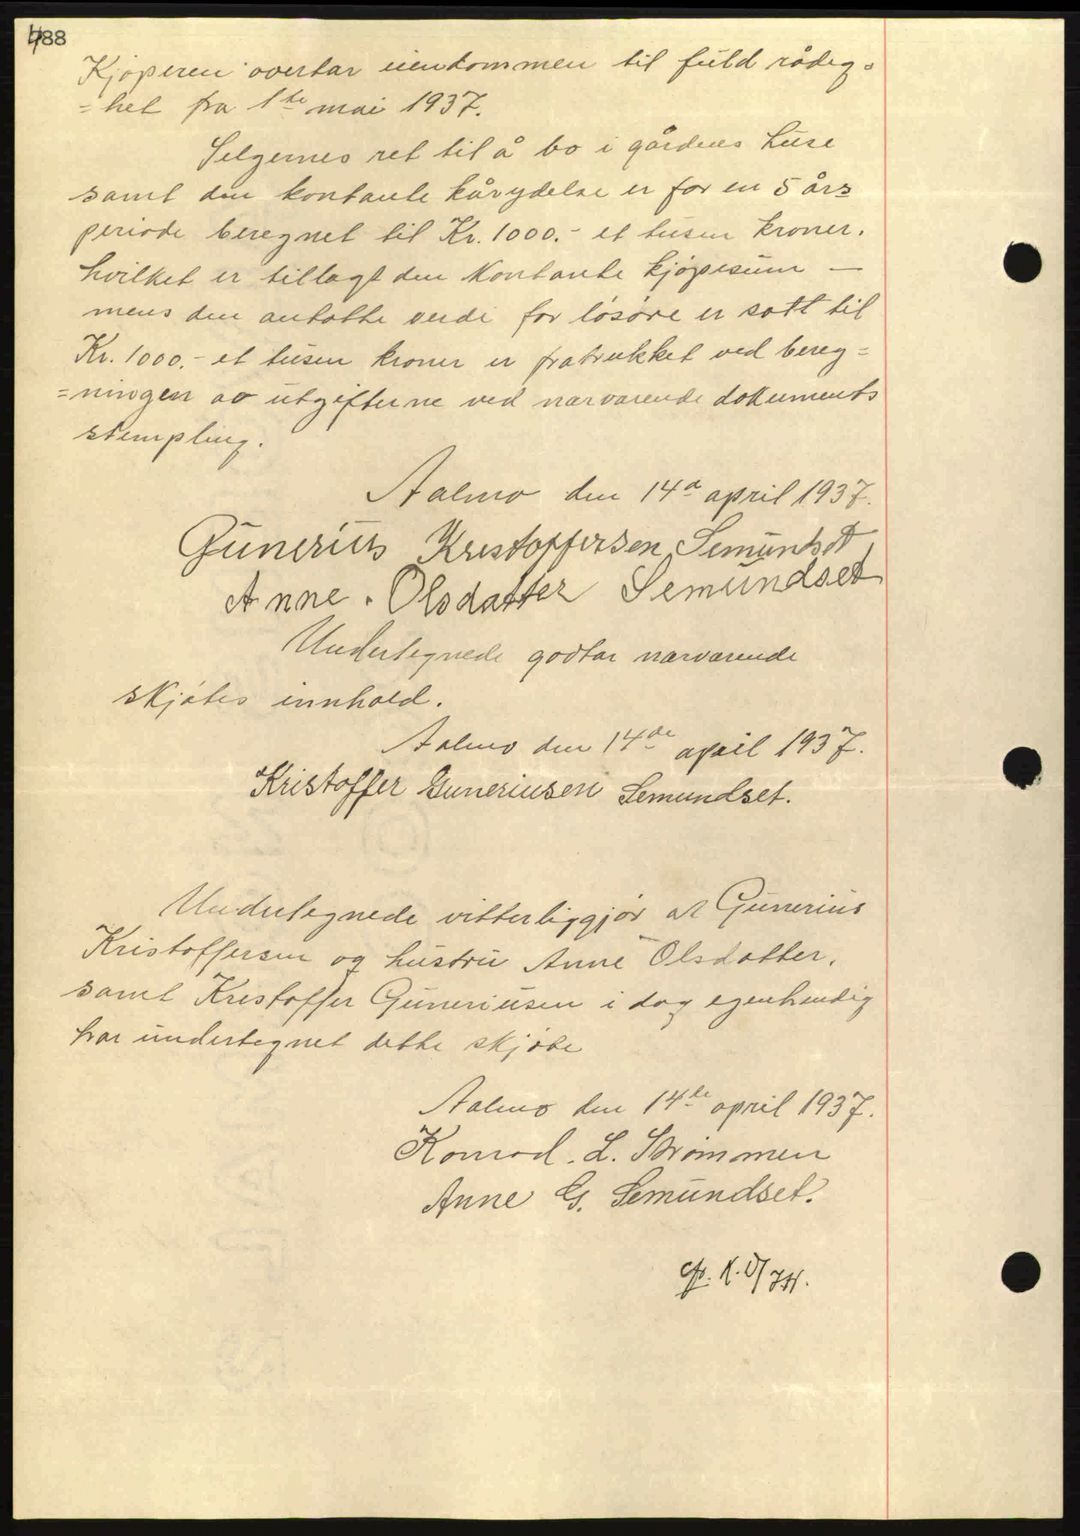 488
Kjøperen overtar eiendommen til fuld rådig=
=het fra 1ste mai 1937.
Selgernes ret til å bo i gårdens huse
samt den kontante kårydelse er for en 5 års
periode beregnet til Kr. 1000.- et tusen kroner.
hvilket er tillagt den kontante kjøpesum —
mens den antatte verdi for løsøre er satt til
Kr. 1000.- et tusen kroner er fratrukket ved bereg=
=ningen av utgifterne ved nærværende dokuments
stempling.
Aalmo den 14de april 1937.
Gunerius Kristoffersen Semundset
Anne . Olsdatter Semundset
Undertegnede godtar nærværende
skjøtes innhold.
Aalmo den 14de april 1937.
Kristoffer Guneriusen Semundset.
Undertegnede vitterliggjør at Gunerius
Kristoffersen og hustru Anne Olsdatter,
samt Kristoffer Guneriusen i dag egenhendig
har undertegnet dette skjøte
Aalmo den 14de april 1937.
Konrad. L. Strømmen
Anne G. Semundset.